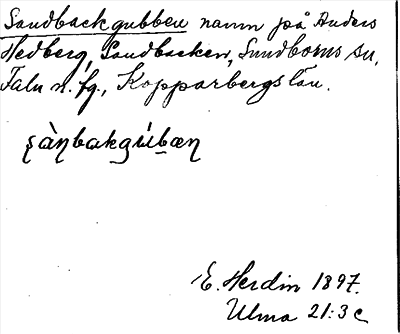 Sandbackgubben namn på Anders
Hedberg, Sandbacken, Sundborns sn,
Falu n. fg., Kopparbergs län.
sànbakgúbæn
E. Herdin 1897.
Ulma 21:3 c